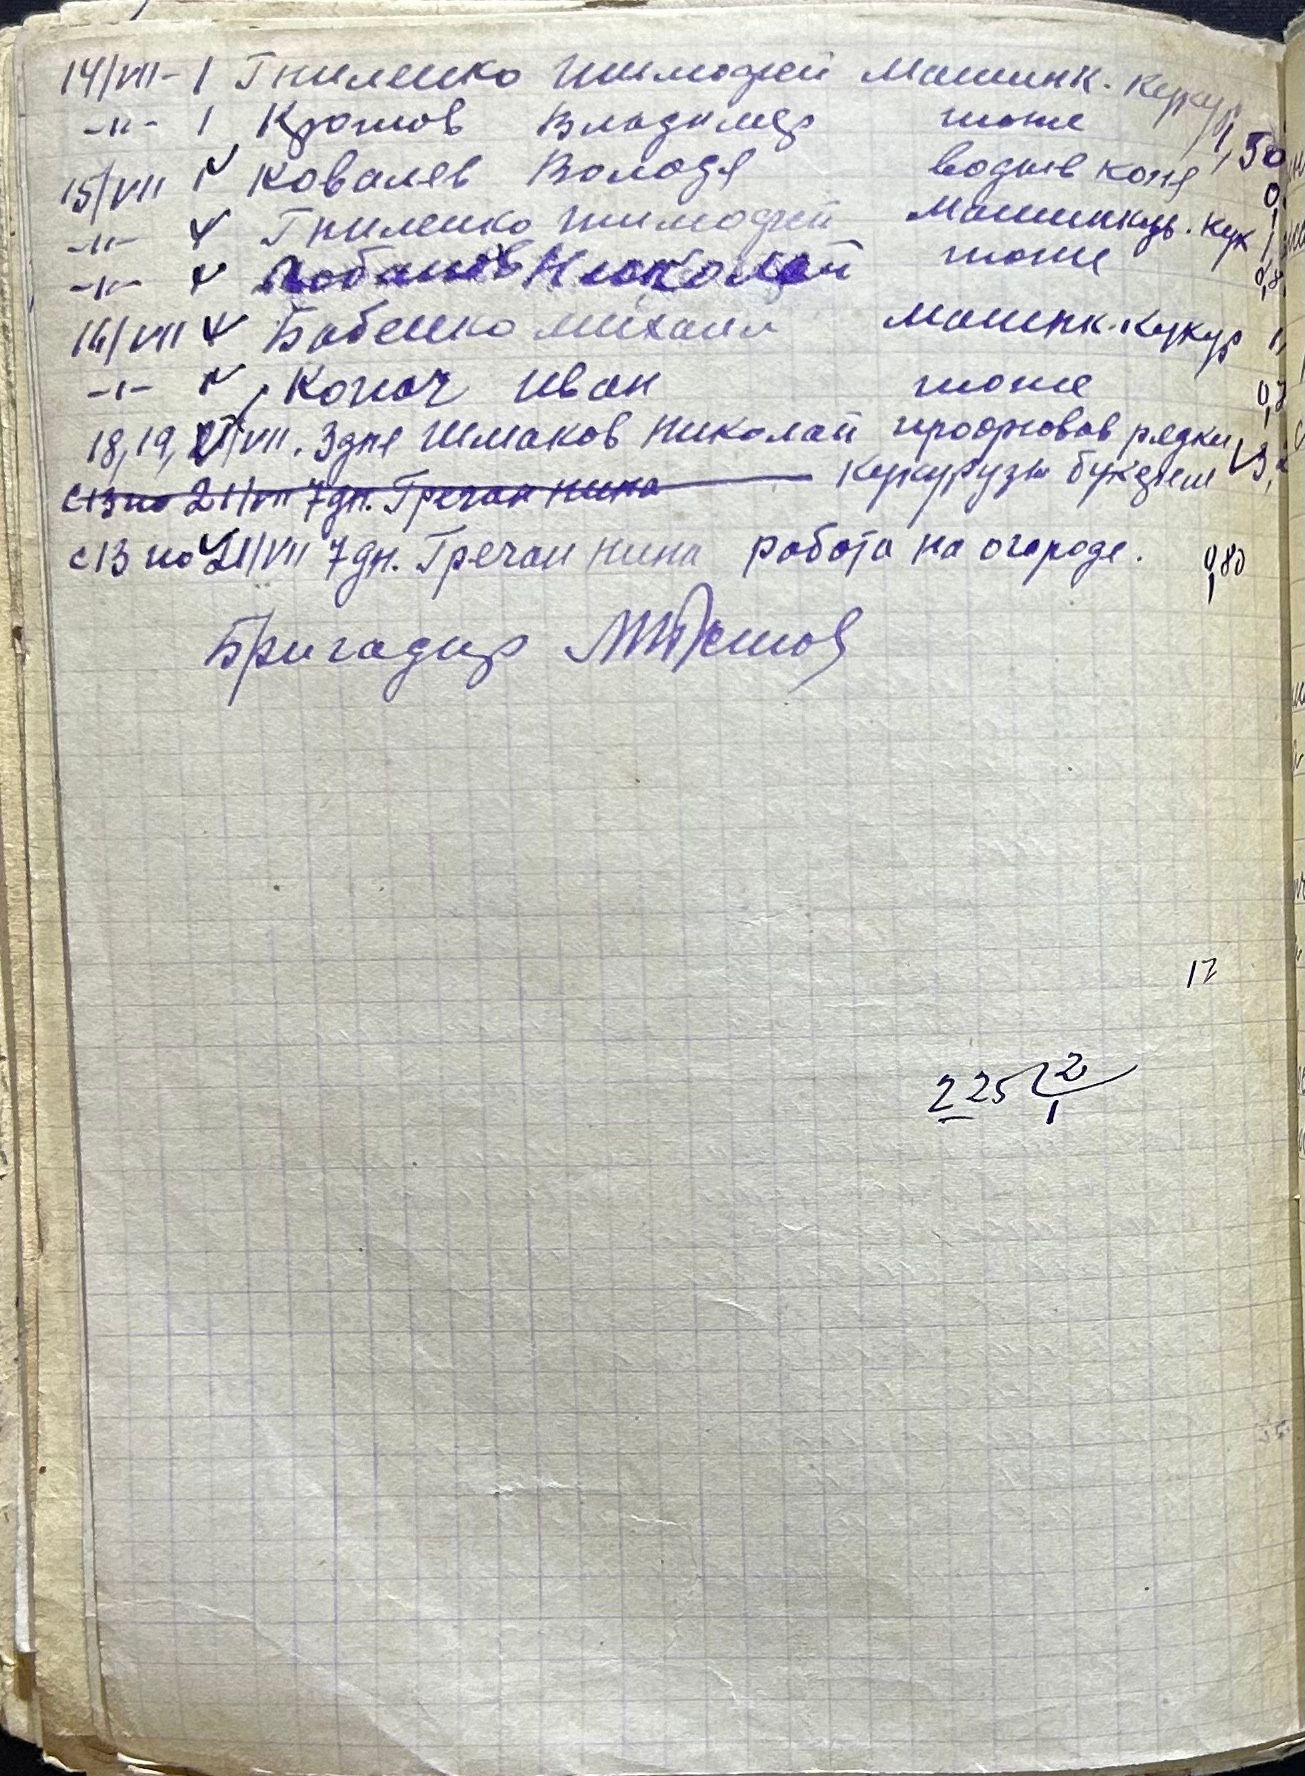 14/VII - 1 Гниленко Тимофей Машинк. кукур
-"- 1 Кротов Владимер тоже 1,50
15/VII Ковалев Володя водыв коня 0,
-"- Гниленко Тимофей Машинкув. кук 1,
-"- Лобанов Николай тоже 0,8
16/VII Бабенко Михаил Машинк. Кукур 1,
-"- Копач Иван тоже 0,7
18, 19, 21/VII. 3 дня Шмаков Николай прорывов рядки 3,
с 13 по 21/VII 7 дн. Гречан Нина кукурузы букетом
с 13 по 21/VII 7 дн. Гречан Нина работа на огороде. 0,80
Бригадир
17
225 2
1